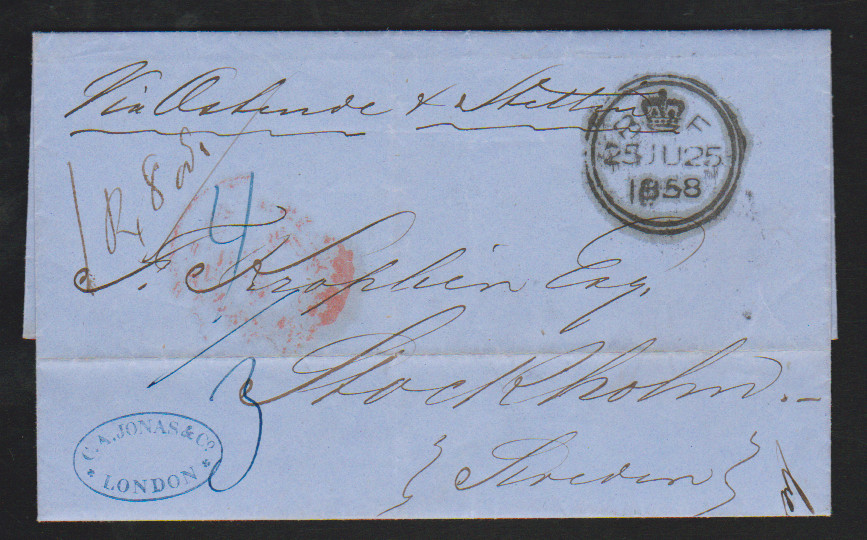 Via Ostende & Stettin
25 JU 25
1858
4
Krophin Esq.
3
Stockholm.-
{ Sweden }
C. A. JONAS & Co.
LONDON